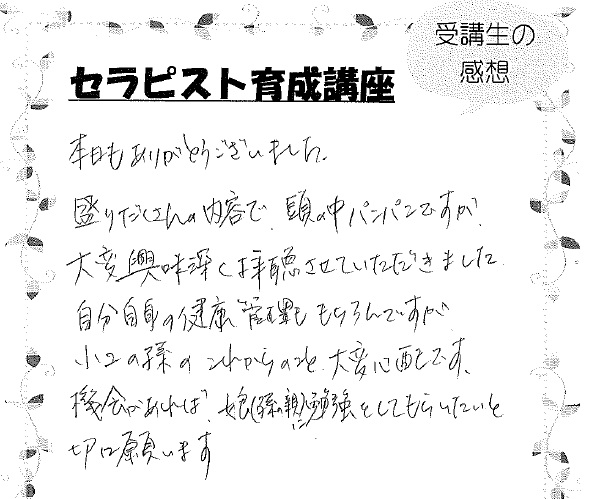 受講生の
感想
セラピスト育成講座
本日もありがとうございました。
盛りだくさんの内容で、頭の中パンパンですが、
大変興味深く拝聴させていただきました。
自分自身の健康管理も もちろんですが
小2の孫のこれからのこと、大変心配です。
機会があれば、娘(孫の親)に勉強をしてもらいたいと
切に願います